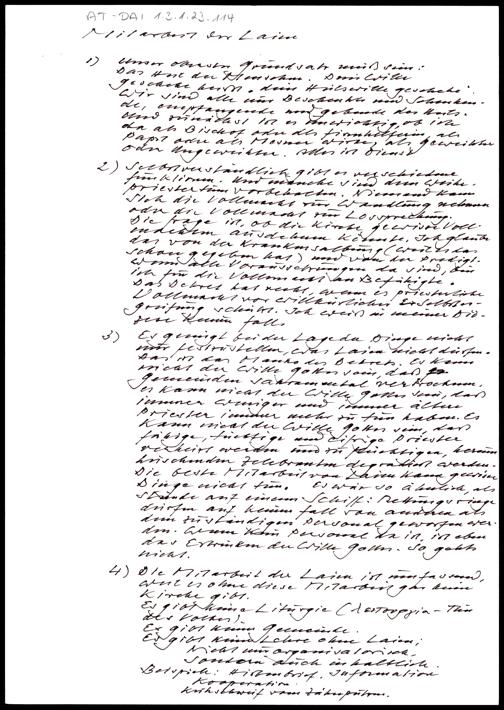 AT-DAI 1.2.1.23.114
Mitarbeit der Laien
1) Unser oberster Grundsatz muß sein:
Das Heil der Menschen. Dein Wille
geschehe heißt: dein Heilswille geschehe.
Wir sind alle nur Beschenkte und Schenken-
de, empfangende und gebende des Heils.
Und zunächst ist es unwichtig, ob ich
da als Bischof oder als Firmhelferin, als
Papst oder als Mesner wirke, als Geweihter
oder Ungeweihter. Alles ist Dienst
2) Selbstverständlich gibt es verschiedene
Funktionen. Und manche sind dem Weihe-
priestertum vorbehalten. Niemand kann
sich die Vollmacht zur Wandlung nehmen
oder die Vollmacht zur Lossprechung.
Die Frage ist, ob die Kirche gewisse Voll-
machten ausdehnen könnte. Ich glaube
das von der Krankensalbung (weil es das
schon gegeben hat) und von der Predigt.
Wenn alle Voraussetzungen da sind, bin
ich für die Vollmacht an Befähigte.
Das Dekret hat recht, wenn es priesterliche
Vollmacht vor willkürlicher Selbster-
greifung schützt. Ich weiß in meiner Diö-
zese keinen Fall
3) Es genügt bei der Lage der Dinge nicht
nur festzustellen, was Laien nicht dürfen.
Das ist das Manko des Dekrets. Es kann
nicht der Wille Gottes sein, daß
Gemeinden sakramental vertrocknen.
Es kann nicht der Wille Gottes sein, daß
immer weniger und immer ältere
Priester immer mehr zu tun haben. Es
kann nicht der Wille Gottes sein, daß
fähige, tüchtige und eifrige Priester
verheizt werden und zu flüchtigen, herum
huschenden Zelebranten degradiert werden.
Die beste Mitarbeit von Laien kann gewisse
Dinge nicht tun. Es wär so ähnlich, als
stünde auf einem Schiff: Rettungsringe
dürfen auf keinen Fall von anderen als
dem zuständigen Personal geworfen wer-
den. Wenn kein Personal da ist, ist eben
das Ertrinken der Wille Gottes. So gehts
nicht.
4) Die Mitarbeit der Laien ist umfassend,
weil es ohne diese Mitarbeit gar keine
Kirche gibt.
Es gibt keine Liturgie ( - Tun
des Volkes).
Es gibt keine Gemeinde.
Es gibt keine Lehre ohne Laien;
Nicht nur organisatorisch,
sondern auch inhaltlich.
Beispiele: Hirtenbrief. Information
Kooperation.
Kuhschweif vom Zähneputzen.